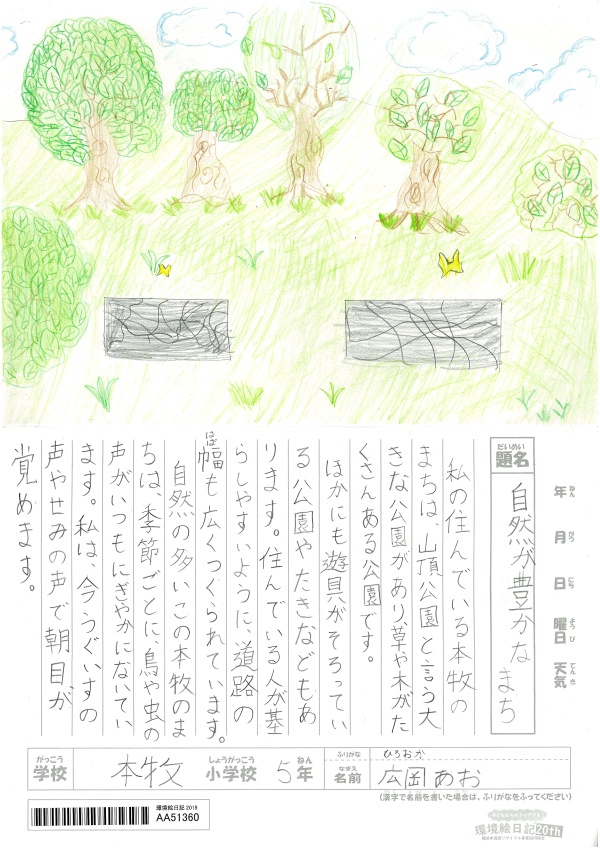 年 ねん
月 がつ
日 にち
曜日 ようび
天気 てんき
題名 だいめい
自然が豊かなまち
私の住んでいる本牧の
まちは、山頂公園と言う大
きな公園があり、草や木がた
くさんある公園です。
ほかにも遊具がそろってい
る公園やたきなどもあ
ります。住んでいる人が基
らしやすいように、道路の
幅も広くつくられています。
はば
自然の多いこの本牧のま
ちは、季節ごとに、鳥や虫の
声がいつもにぎやかにないてい
ます。私は、今うぐいすの
声やせみの声で朝目が
覚めます。
がっこう
学校
本牧
しょうがっこう
小学校
5
ねん
年
ふりがな
ひろおか
なまえ
名前
広岡あお
(漢字で名前を書いた場合は、ふりがなをふってください)
環境絵日記 2019
AA51360
環境絵日記20th